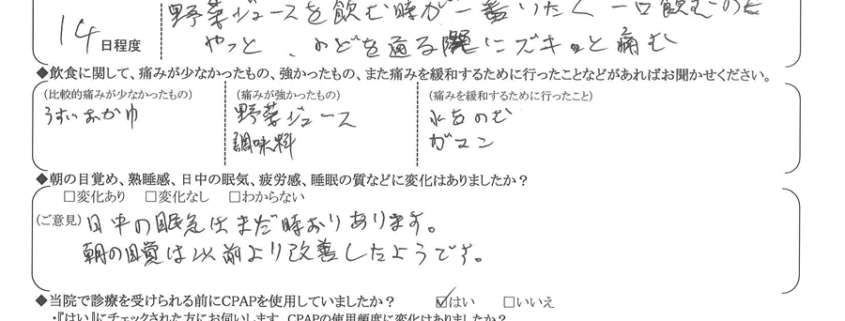 野菜ジュースを飲む時が一番いたく 一口飲むのを
14日程度
やっと、のどを通る際にズキッと痛む
◆飲食に関して、痛みが少なかったもの、強かったもの、また痛みを緩和するために行ったことなどがあればお聞かせください。
(比較的痛みが少なかったもの) (痛みが強かったもの) (痛みを緩和するために行ったこと)
うすいおかゆ 野菜ジュース 水をのむ
調味料 ガマン
◆朝の目覚め、熟睡感、日中の眠気、疲労感、睡眠の質などに変化はありましたか？
□変化あり □変化なし □わからない
(ご意見) 日中の眠気はまだ時おりあります。
朝の目覚は以前より改善したようです。
◆当院で診療を受けられる前にCPAPを使用していましたか？ ☑はい □いいえ
・『はい』にチェックされた方にお伺いします。CPAPの使用頻度に変化はありましたか？